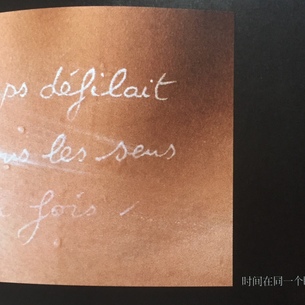 ps défilait
ns les sens
fois
时间在同一个